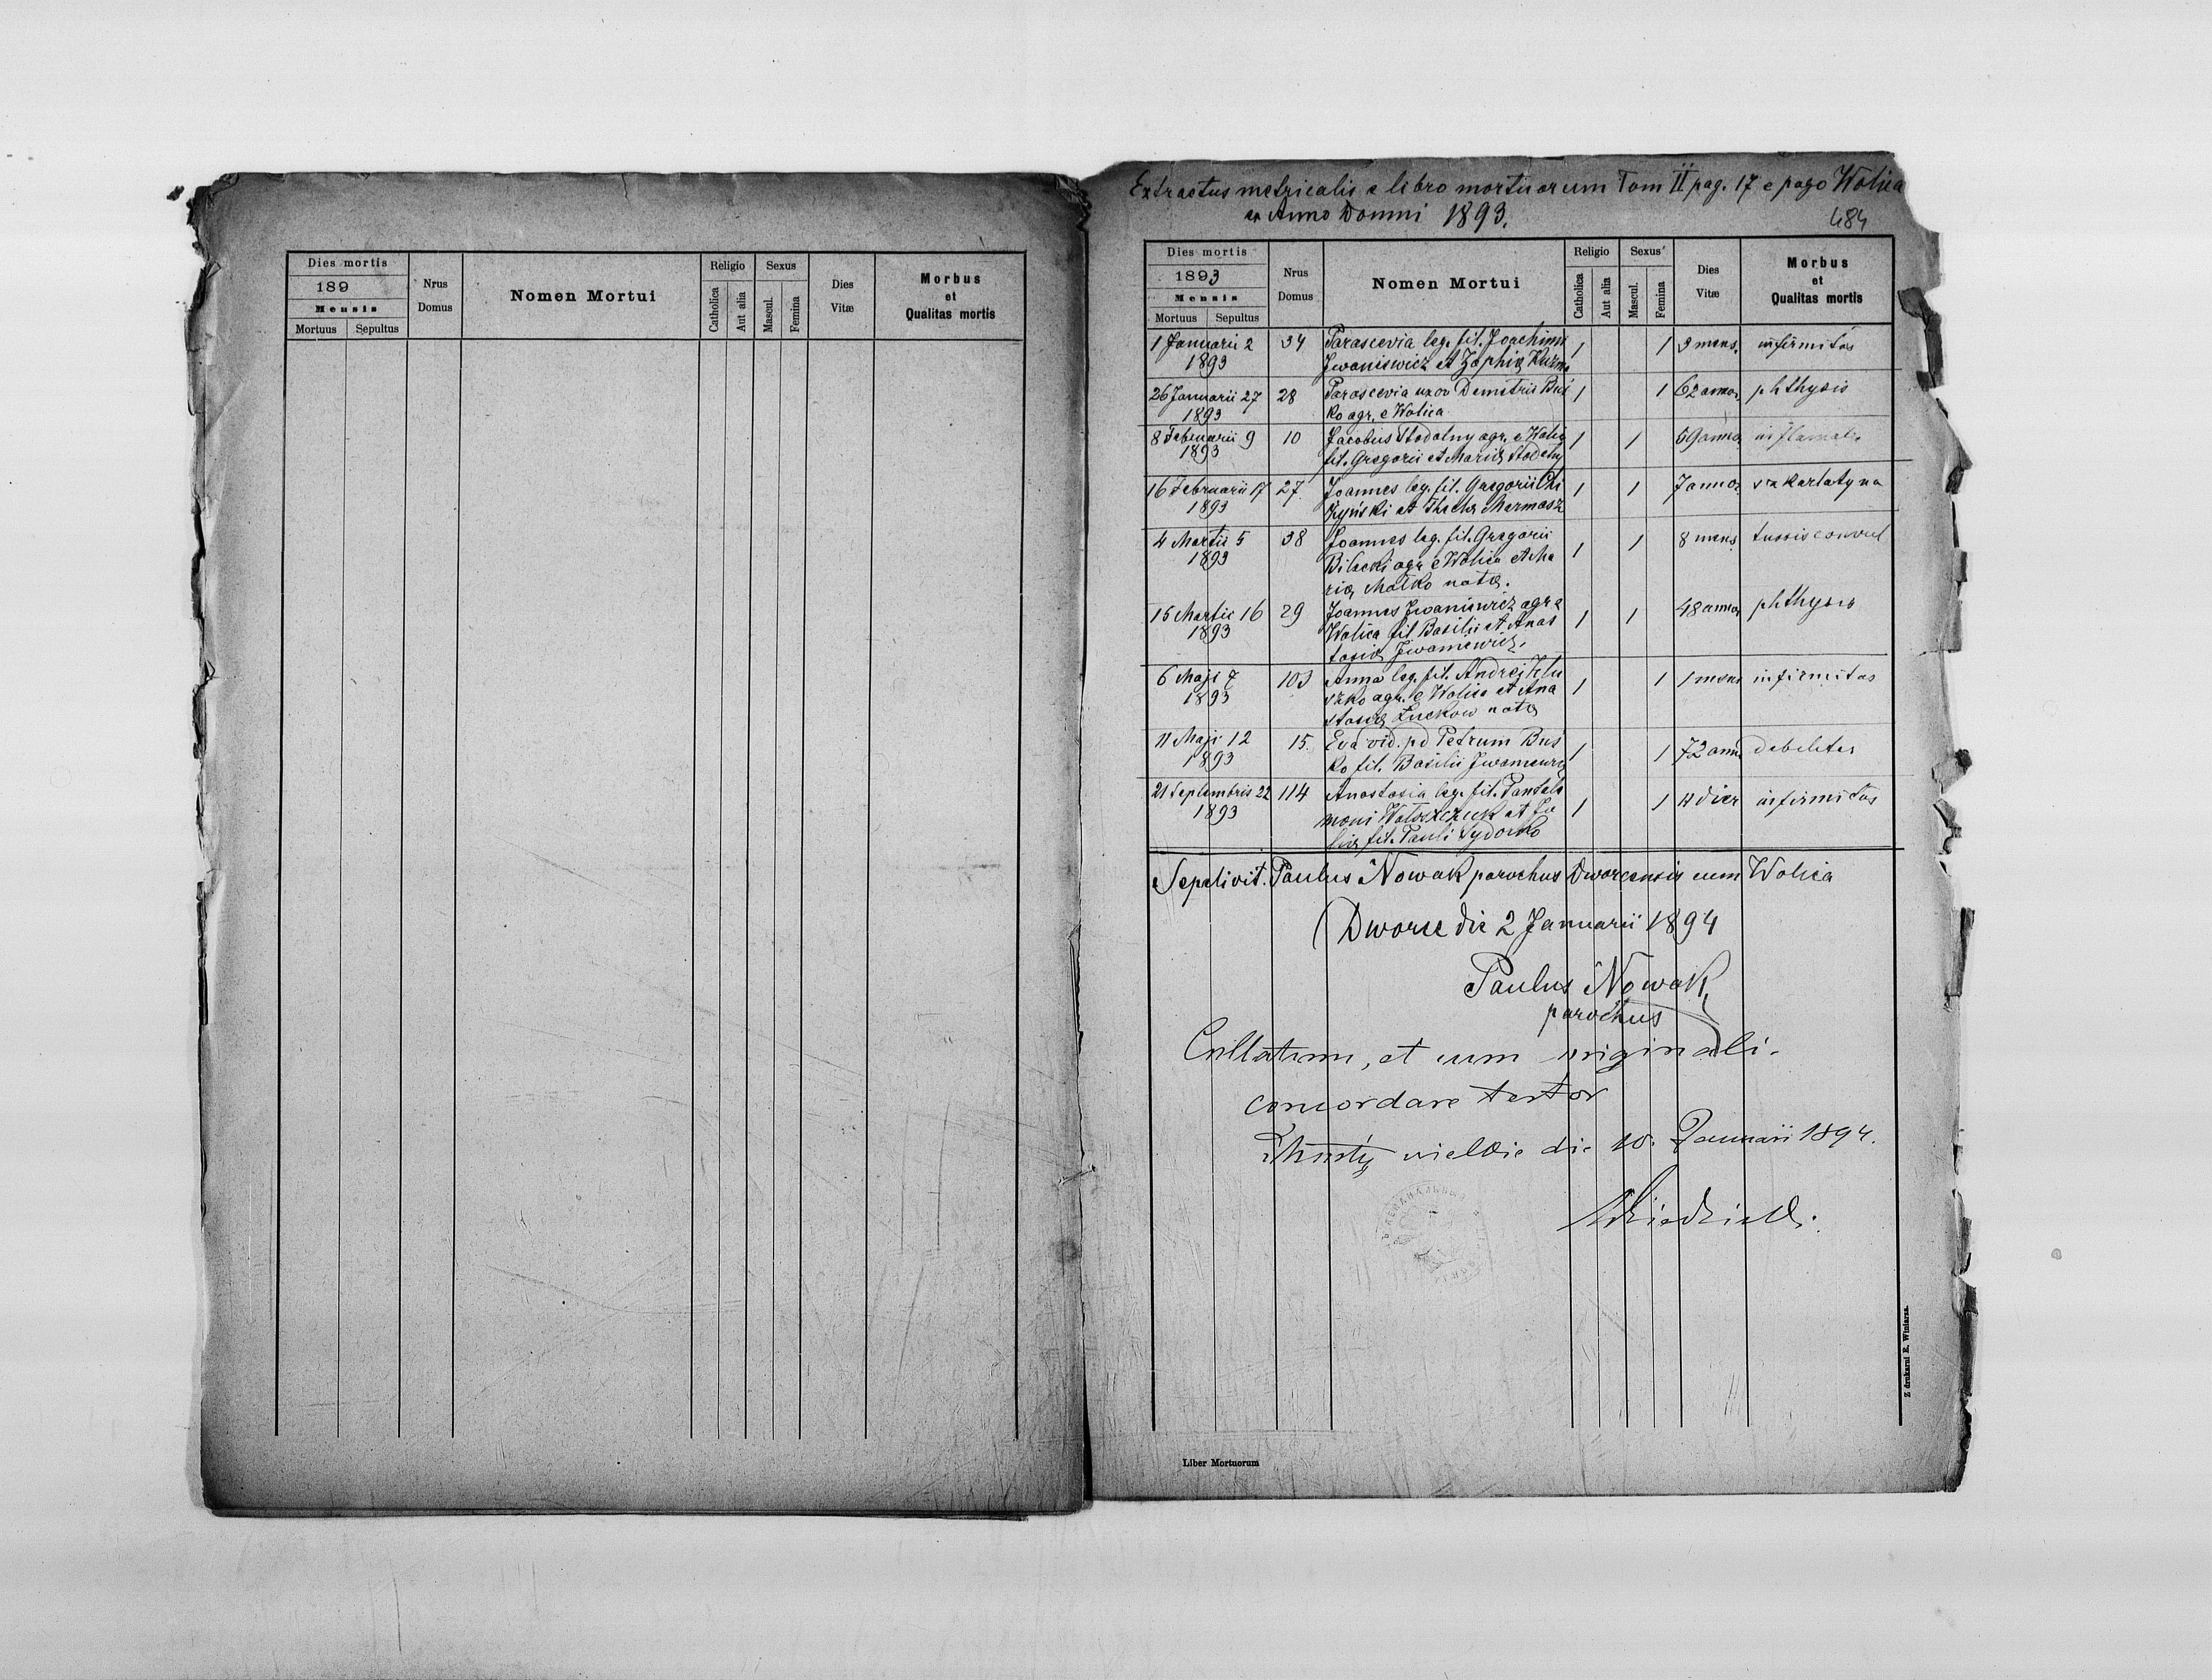 Dies mortis
189
Mensis
Mortuus Sepultus
Nrus
Domus
Nomen Mortui
Religio
Catholica
Aut alia
Sexus
Mascul.
Femina
Dies
Vitæ
Morbus
et
Qualitas mortis
Extractus metricalis e libro mortuorum Tom II pag. 17 e pago Wolica
ex Anno Domni 1893.
484
Dies mortis
1893
Mensis
Mortuus Sepultus
Nrus
Domus
Nomen Mortui
Religio
Catholica
Aut alia
Sexus
Mascul.
Femina
Dies
Vitæ
Morbus
et
Qualitas mortis
1 Januarii 2 34 Parascevia leg. fil. Joachimi 1 1 3 mens. infirmitas
1893 Iwanisewicz et Zophiæ Kuzma
26 Januarii 27 28 Parascevia uxor Demetrii Bus 1 1 62 annor. phthysis
1893 ko agr. e Wolica
8 Februarii 9 10 Jacobus Stodolny agr. e Wolica 1 1 59 annor.
1893 fil. Gregorii et Mariæ Stodolny
16 Februarii 17 27 Joannes leg. fil. Gregorii 1 1 7 annor szkarlatyna
1893 et Theclæ Marmasz
4 Martii 5 38 Joannes leg. fil. Gregorii 1 1 8 mens. tussis convul
1893 Bilecki agr e Wolica et Ma
riæ Matko natæ.
15 Martii 16 29 Joannes Iwaniewicz agr e 1 1 48 annor phthysis
1893 Wolica fil Basilii et Anas
tasiæ Iwaniewicz.
6 Maji 7 103 Anna leg. fil. Andrej 1 1 1 mens infirmitas
1893 szko agr. e Wolica et Ana
stasiæ Łuckow natæ
11 Maji 12 15. Eva vid. pd Petrum Bus 1 1 72 ann. debilitas
1893 ko fil. Basilii
21 Septembris 22 114 Anastasia leg. fil. Pantele 1 1 11 dier infirmitas
1893 moni Wołoszczuk et Ju
liæ fil. Pauli Sydorko
Sepelivit. Paulus Nowak parochus Dworcensis cum Wolica
Dworce die 2 Januarii 1894
Paulus Nowak
parochus
Collatum, et cum originali
concordare testor
wielkie die 10. Januarii 1894.
Z drukarni E. Winiarza.
Liber Mortuorum